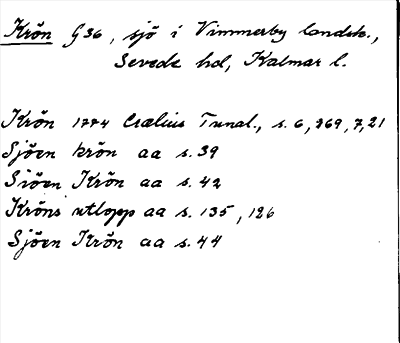 Krön G36, sjö i Vimmerby landsk.,
Sevede hd, Kalmar l.
Krön 1774 Craelius Tunal., s. 6, 269, 7, 21
Sjöen krön aa s. 39
Siöen Krön aa s. 42
Kröns utlopp aa s. 135, 126
Sjöen Krön aa s. 44